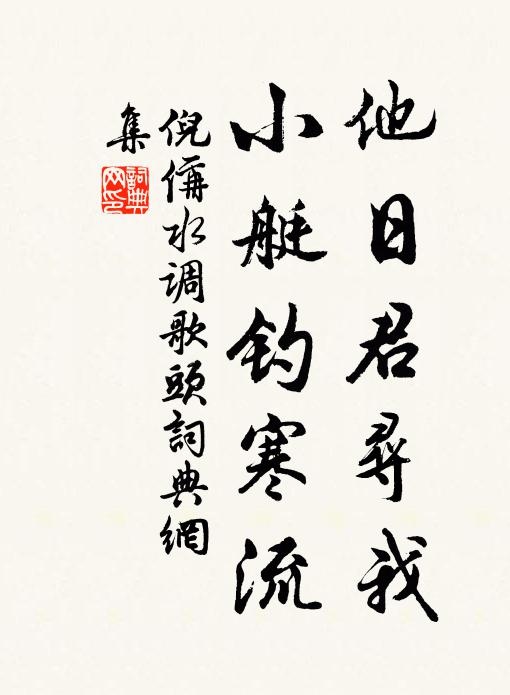 他日君尋我
小艇钓寒流
倪偁水调歌頭詞典網
集
詞典
网印